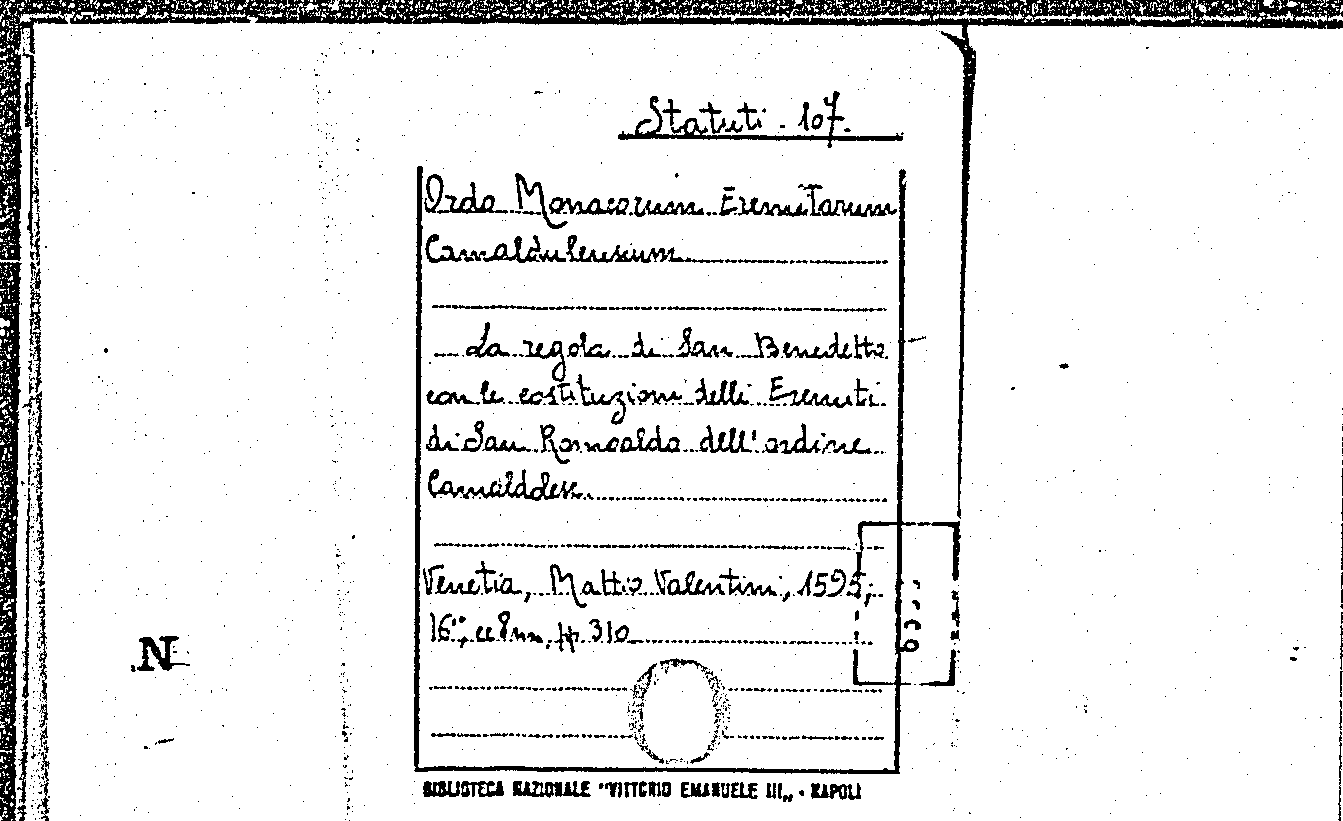 Statuti - 107.
Ordo Monacorum Eremitarum
Camaldulensium
La regola di San Benedetto
con le costituzioni delli Eremiti
di San Romoaldo dell'ordine
Camaldolese
Venetia, Mattio Valentini, 1595;
16°, cc 8 nn, pp. 310
N
BIBLIOTECA NAZIONALE "VITTORIO EMANUELE III„ - NAPOLI